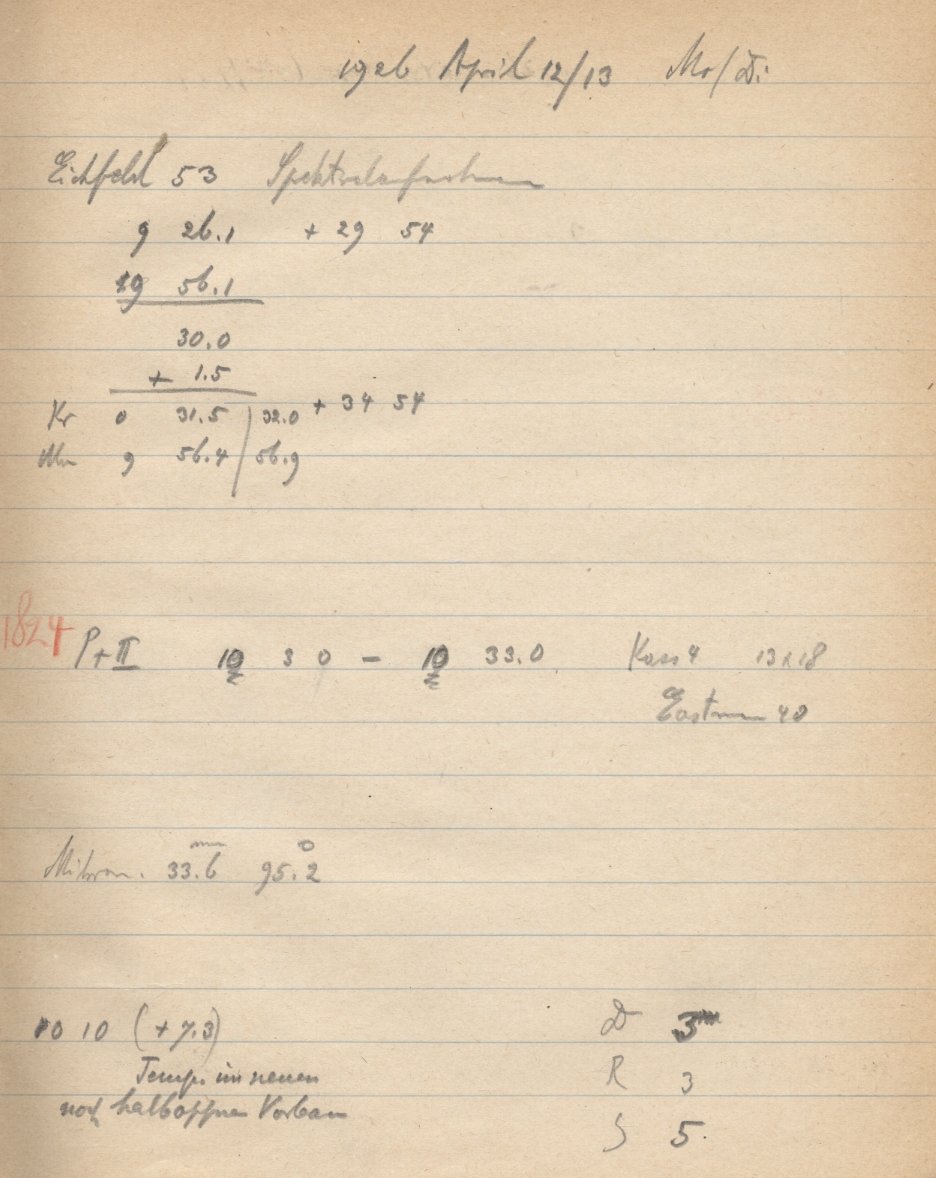 1926 April 12/13 Mo/Di
Eichfeld 53 Spektralaufnahmen
9 26.1 + 29 54
9 56.1
30.0
+ 1.5
Kr 0 31.5 / 32.0 + 34 54
9 56.4 / 56.9
1824 Pr II 10 30 - 10 33.0 Kass 4 13x18
Eastman 40
Mikrom. 33.6 mm 95.2 °
10 10 (+7.3) D 3
Temp. im neuen R 3
noch halboffnen Vorbau S 5.